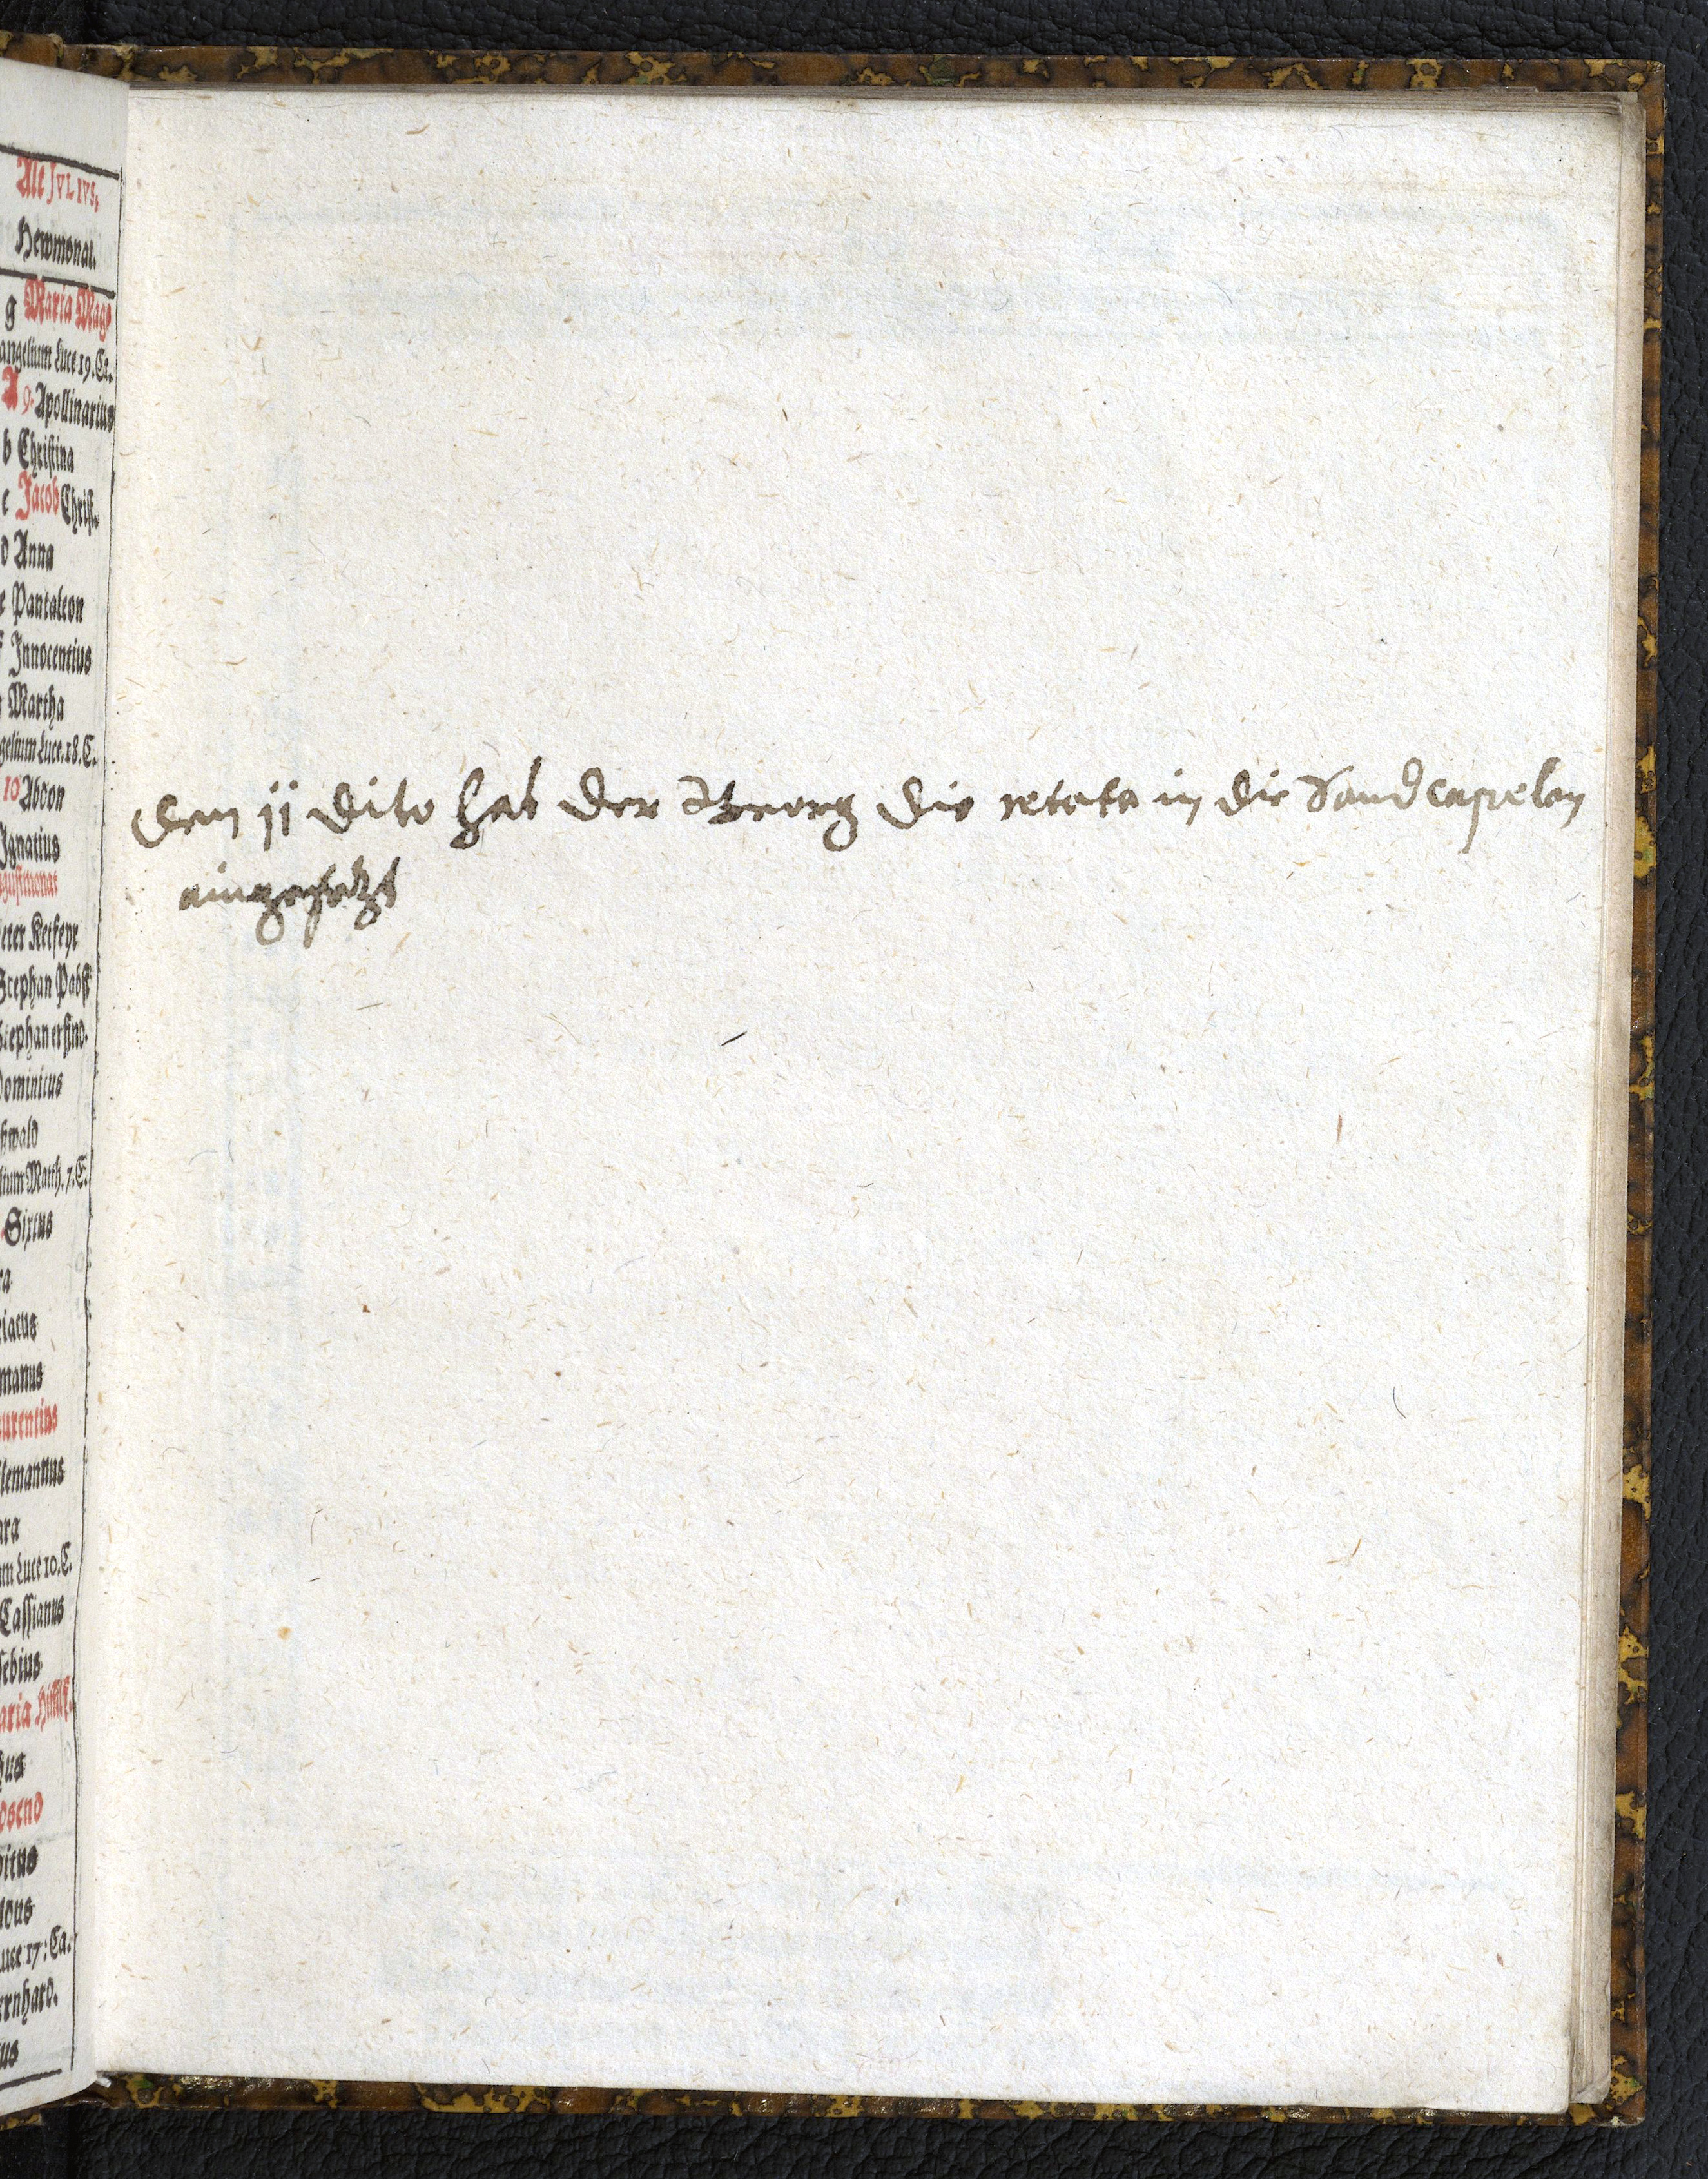 Alt JVLIVS,
Hewmonat.
g Maria Mag
angelium Luce 19. Ca.
A 9. Apollinarius
b Christina
c Jacob Christ.
d Anna
e Pantaleon
f Innocentius
Martha
gelium Luce. 18. C.
10 Abdon
Ignatius
gustmonat
eter Ketfeyr
Stephan Pabst
Stephan erfind.
Dominicus
ßwald
lium Matth. 7. C.
Sixtus
ra
riacus
manus
aurentius
lemannus
ara
um Luce 10. C.
Cassianus
sebius
aria Himlf.
hus
bitus
Luce 17: Ca.
ernhard.
us
den 11 dito hat der Georg die retata in die Sandcapelen
eingesetzt